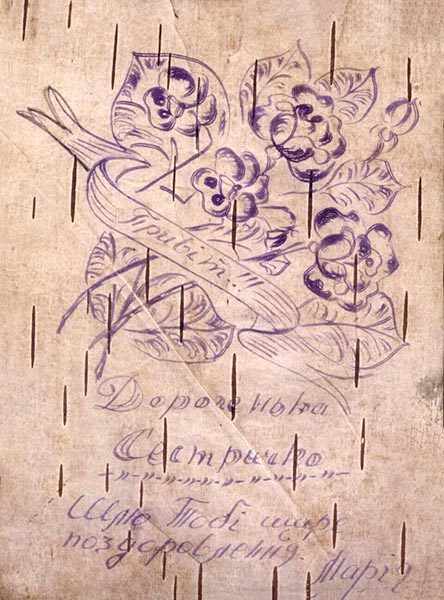 Привіт!!!
Дорогенька
Сестричко
Шлю Тобі щире
поздоровлення.
Марія